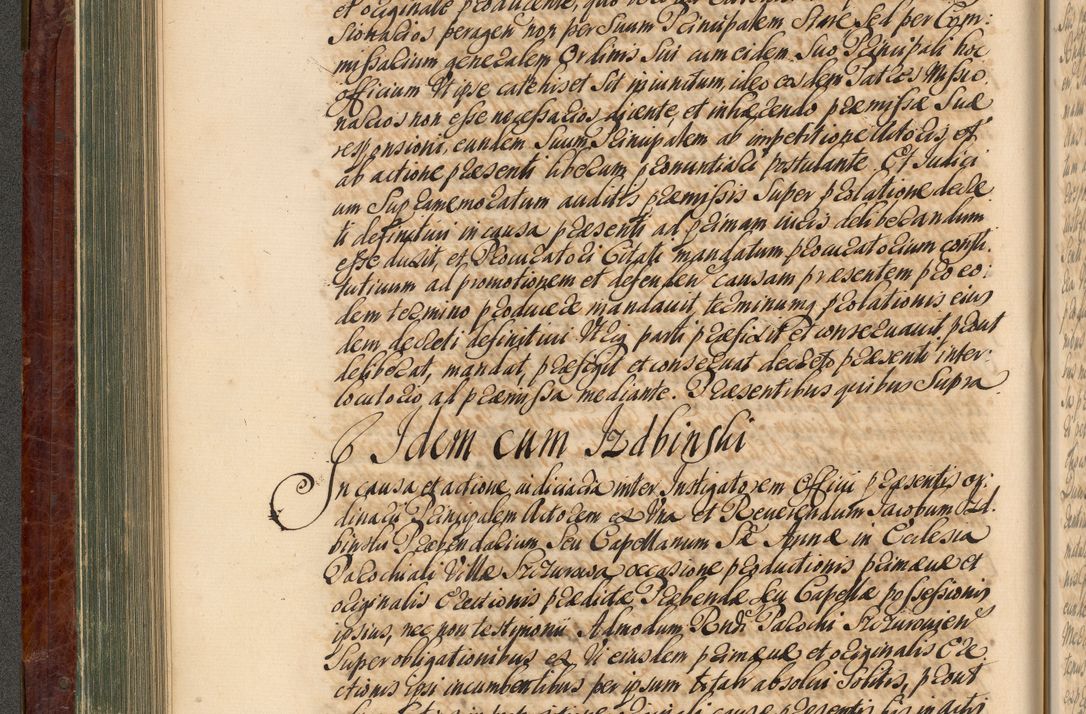 et originale producente, quo
sionarios peragen non per suum Principalem stare sed per Com:
missarium generalem Ordinis sui cum eidem suo Principali hoc
officium Ut ipse catehiset sit iniunctum, ideo eosdem Patres Missio
narios non esse necessarios dicente, et inhærendo præmissæ suæ
responsioni, eundem suum Principalem ab impetitione Actoris et
ab actione præsenti liberum pronuntiari postulante. Et Judici
um Supramemoratum auditis præmissis super prolatione decre
ti definitivi in causa præsenti ad primam iuris deliberandum
esse duxit, et Procuratori Citati mandatum procuratorium consti
tutivum ad promotionem et defenden causam præsentem pro eo:
dem termino producere mandavit, terminumq prolationis eius
dem decreti definitivi Utriq parti præfixit et conservavit, prout
deliberat, mandat, præfigit et conservat decreto præsenti inter:
locutorio ad præmissa mediante. Præsentibus quibus Supra
Idem cum Izdbinski
In causa et actione iudiciaria inter Instigatorem Officii præsentis or:
dinarii Principalem Actorem ex Una et Reverendum Jacobum Izd:
binski Præbendarium seu Capellanum Sæ Annæ in Ecclesia
Parochiali Villæ Szczurowa occasione productionis primævæ et
originalis Erectionis prædictæ Præbendæ seu Capellæ possessionis
ipsius, nec non testimonii Admodum Rndi Parochi Szczurovien
super obligationibus ex Vi eiusdem primævæ et originalis Ere
ctionis ipsi incumbentibus per ipsum Citatum absolvi solitis, prout